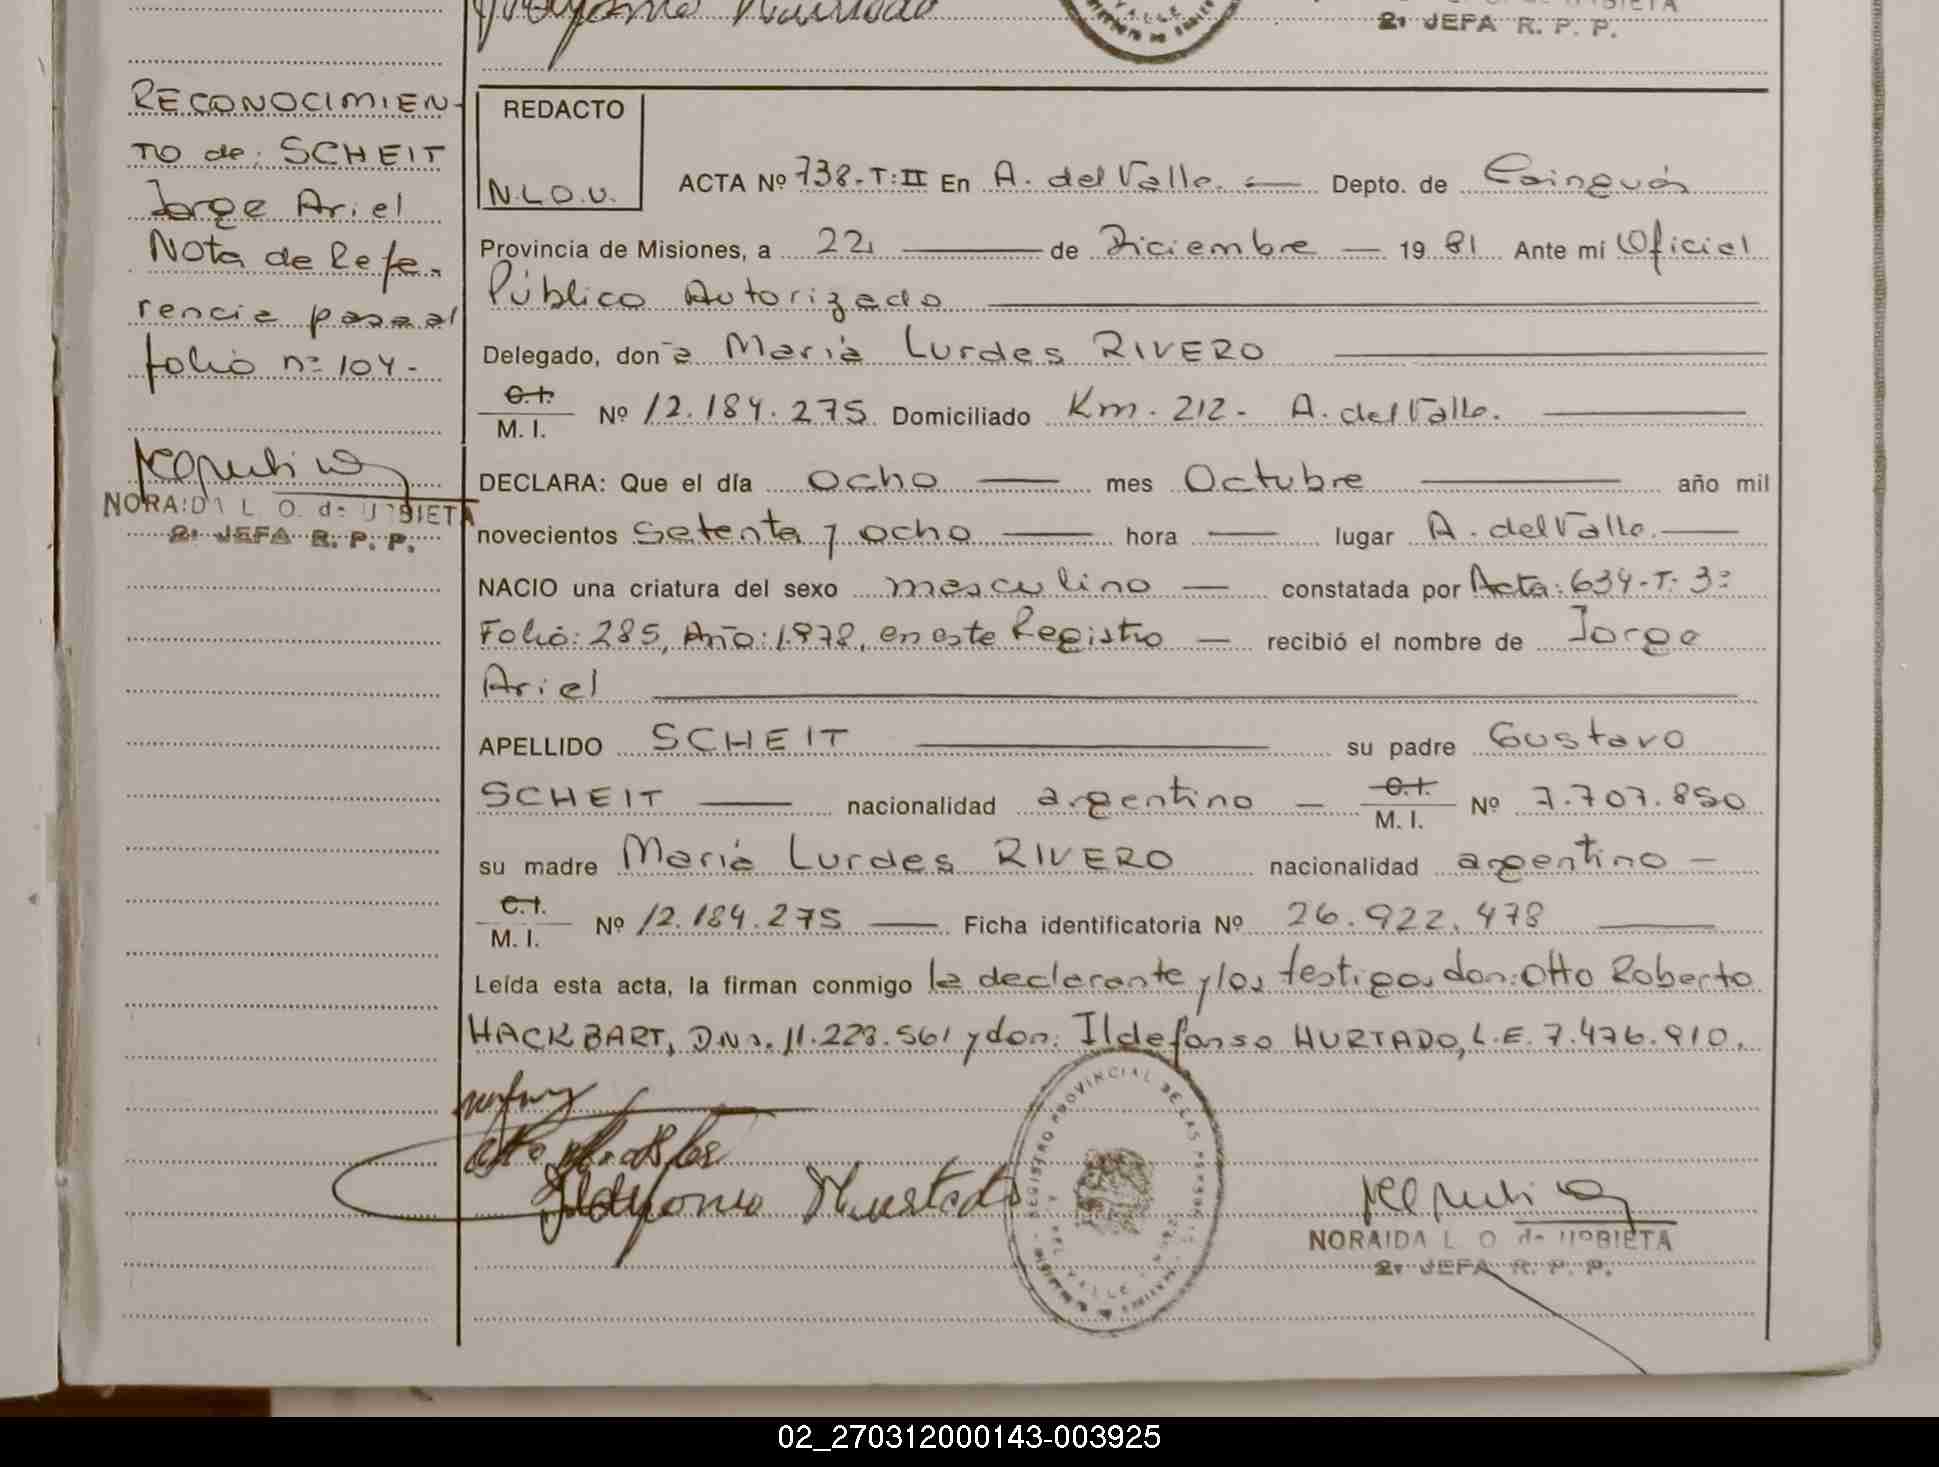 2ª JEFA R. P. P.
RECONOCIMIEN-
TO de: SCHEIT
Jorge Ariel
Nota de Refe-
rencia pasa al
folio nº 104-
NORAIDA L. O. de URBIETA
2ª JEFA R. P. P.
REDACTO
N.L.O.U.
ACTA Nº 738-T:II En A. del Valle. — Depto. de Cainguás
Provincia de Misiones, a 22 — de Diciembre — 19 81 Ante mí Oficial
Público Autorizado
Delegado, don a María Lurdes RIVERO
C.I.
M. I. Nº 12.184.275 Domiciliado Km. 212- A. del Valle.
DECLARA: Que el día ocho — mes Octubre — año mil
novecientos setenta y ocho — hora — lugar A. del Valle. —
NACIO una criatura del sexo masculino — constatada por Acta: 634-T: 3º
Folio: 285, Año: 1.978, en este Registro — recibió el nombre de Jorge
Ariel
APELLIDO SCHEIT — su padre Gustavo
SCHEIT — nacionalidad argentino — C.I.
M. I. Nº 7.707.850
su madre María Lurdes RIVERO nacionalidad argentino —
C.I.
M. I. Nº 12.184.275 — Ficha identificatoria Nº 26.922.478
Leída esta acta, la firman conmigo la declarante y los testigos don: Otto Roberto
HACKBART, DNI. 11.223.561 y don: Ildefonso HURTADO, L.E. 7.476.910.
Ildefonso Hurtado
REGISTRO PROVINCIAL DE LAS PERSONAS
DEL VALLE
NORAIDA L. O. de URBIETA
2ª JEFA R. P. P.
02_270312000143-003925